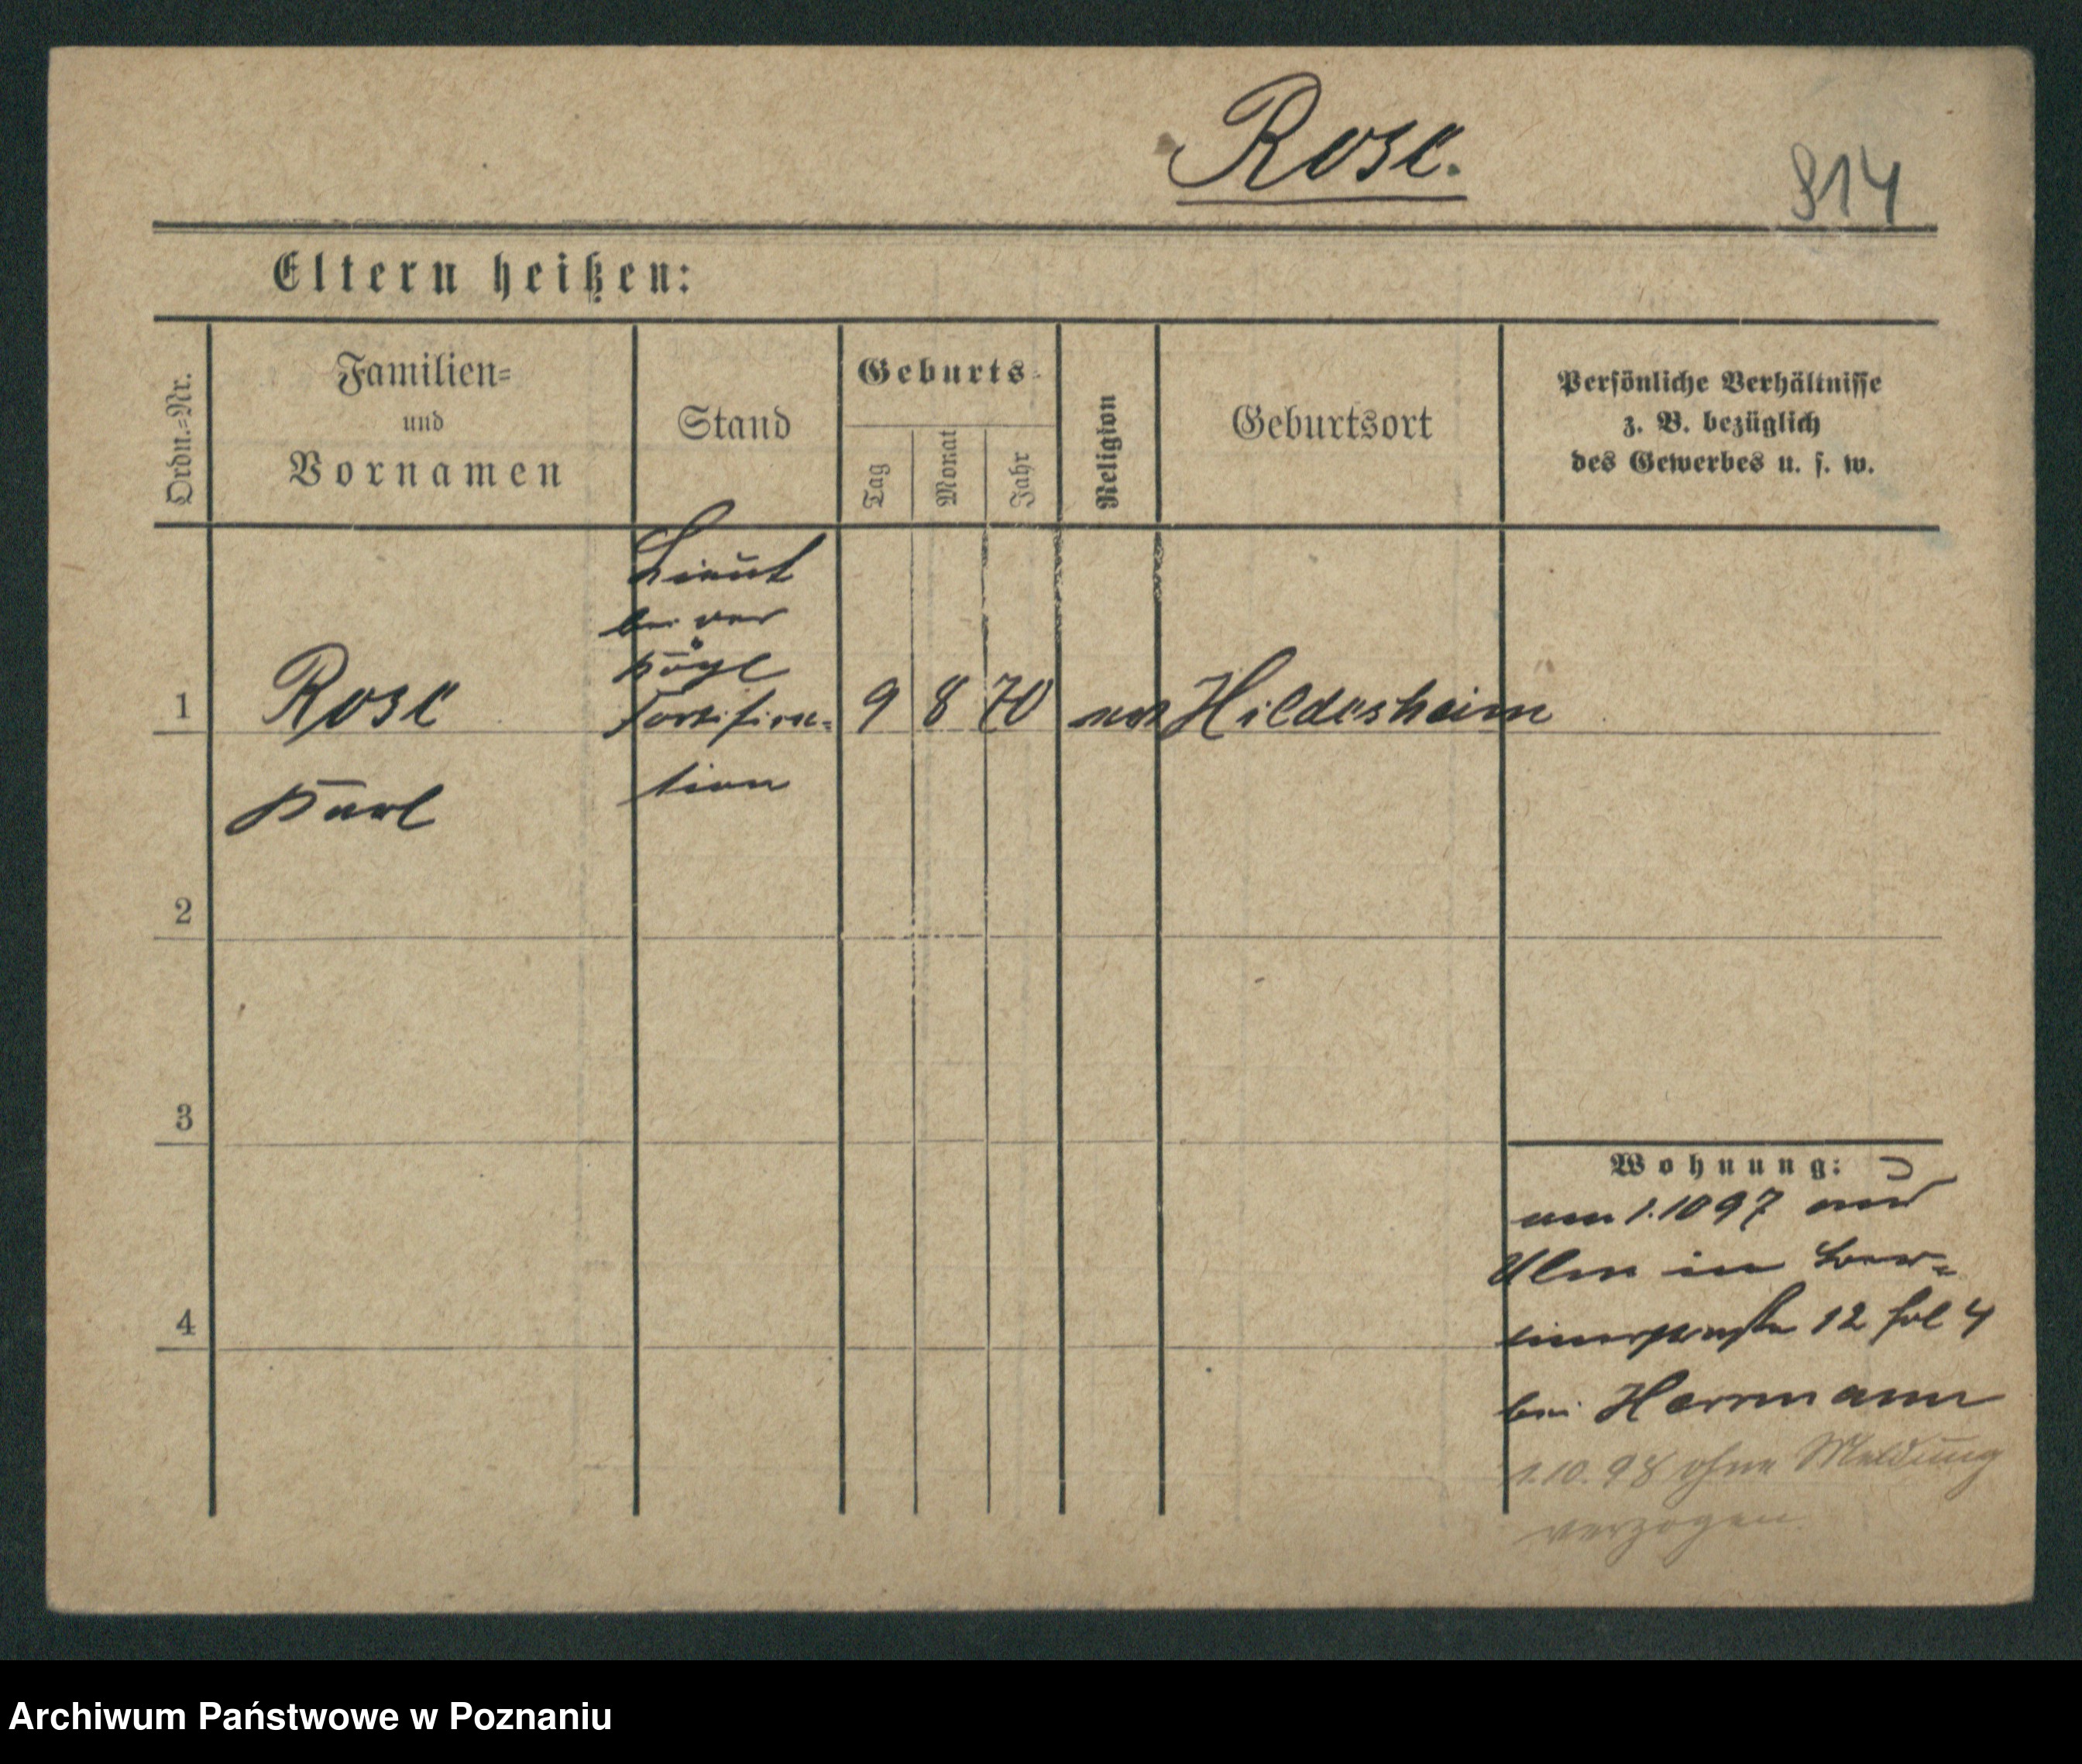 Rose.
814
Eltern heißen:
Ordn.=Nr.
Familien=
und
Vornamen
Stand
Geburts-
Tag
Monat
Jahr
Religion
Geburtsort
Persönliche Verhältnisse
z. B. bezüglich
des Gewerbes u. s. w.
Lieut
bei der
Kögl
Fortifica=
tion
1
Rose
9 8 70
Hildesheim
Karl
2
3
4
Wohnung:
am 1.10 97 aus
Ulm in
12 fol 4
bei Herrmann
1.10.98 ohne Meldung
verzogen.
Archiwum Państwowe w Poznaniu